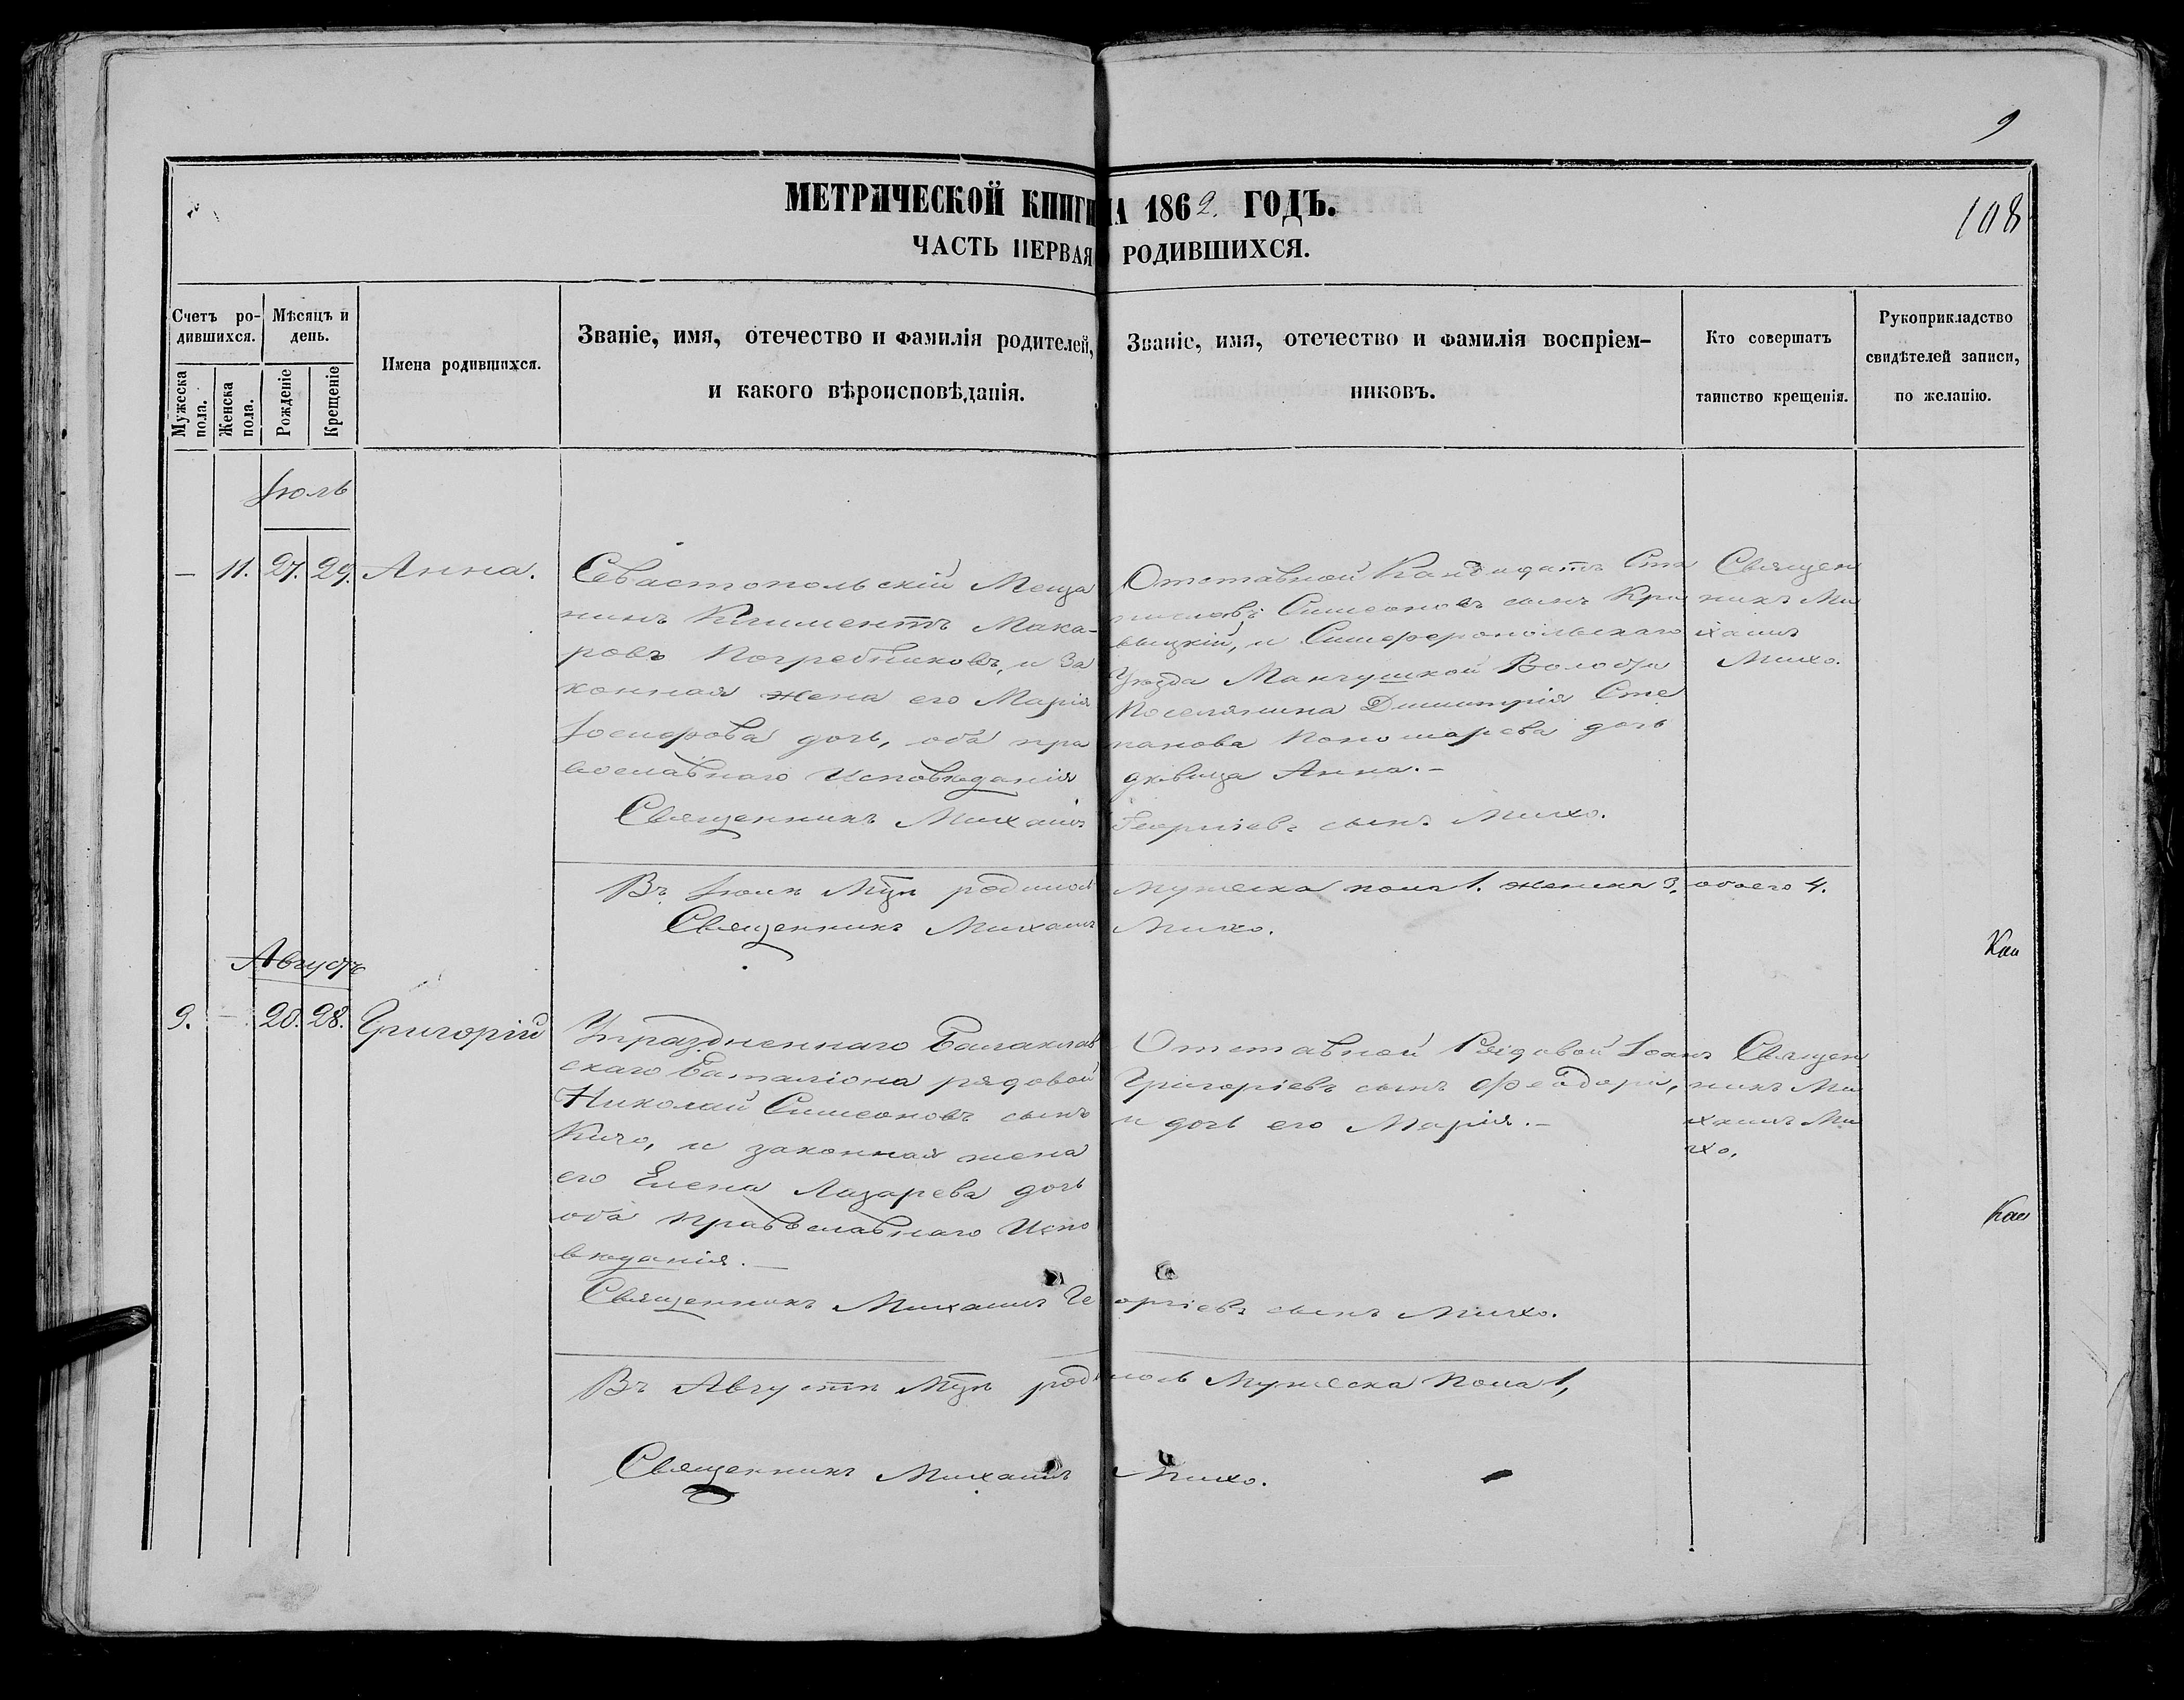 9
МЕТРИЧЕСКОЙ КНИГИ НА 1862. ГОДЪ.
108
ЧАСТЬ ПЕРВАЯ О РОДИВШИХСЯ.
Счетъ ро-
дившихся.
Мѣсяцъ и
день.
Мужеска
пола.
Женска
пола.
Рожденіе
Крещеніе
Имена родившихся.
Званіе, имя, отечество и фамилія родителей,
и какого вѣроисповѣданія.
Званіе, имя, отечество и фамилія воспріем-
никовъ.
Кто совершатъ
таинство крещенія.
Рукоприкладство
свидѣтелей записи,
по желанію.
Іюль
— 11. 27. 29. Анна.
Севастопольскій Меща
нинъ Климентъ Мака-
ровъ Погребниковъ, и За
конная жена его Марія
Іосифова дочь, оба пра
вославнаго Исповѣданія
Отставной Кандидатъ Ста
ниславъ Симеоновъ сынъ
и Симферопольскаго
Уѣзда Мангушкой Волости
Поселянина Димитрія Сте
панова Пономарева дочь
дѣвица Анна. —
Священ
никъ Ми
хаилъ
Михо.
Священникъ Михаилъ Георгіевъ сынъ Михо.
Въ Іюлѣ Мцѣ родилось Мужеска пола 1. женска 3. обоего 4.
Священникъ Михаилъ Михо.
Августъ
9. — 20. 28. Григорій
Упраздненнаго Балаклав
скаго Баталіона рядовой
Николай Симеоновъ сынъ
Кичо, и законная жена
его Елена Лазарева дочь
оба православнаго Испо
вѣданія. —
Отставной Рядовой Іоанъ
Григоріевъ сынъ Феодори,
и дочь его Марія. —
Священ
никъ Ми
хаилъ Ми
хо.
Священникъ Михаилъ Георгіевъ сынъ Михо.
Въ Августѣ Мцѣ родилось Мужеска Пола 1,
Священникъ Михаилъ Михо.